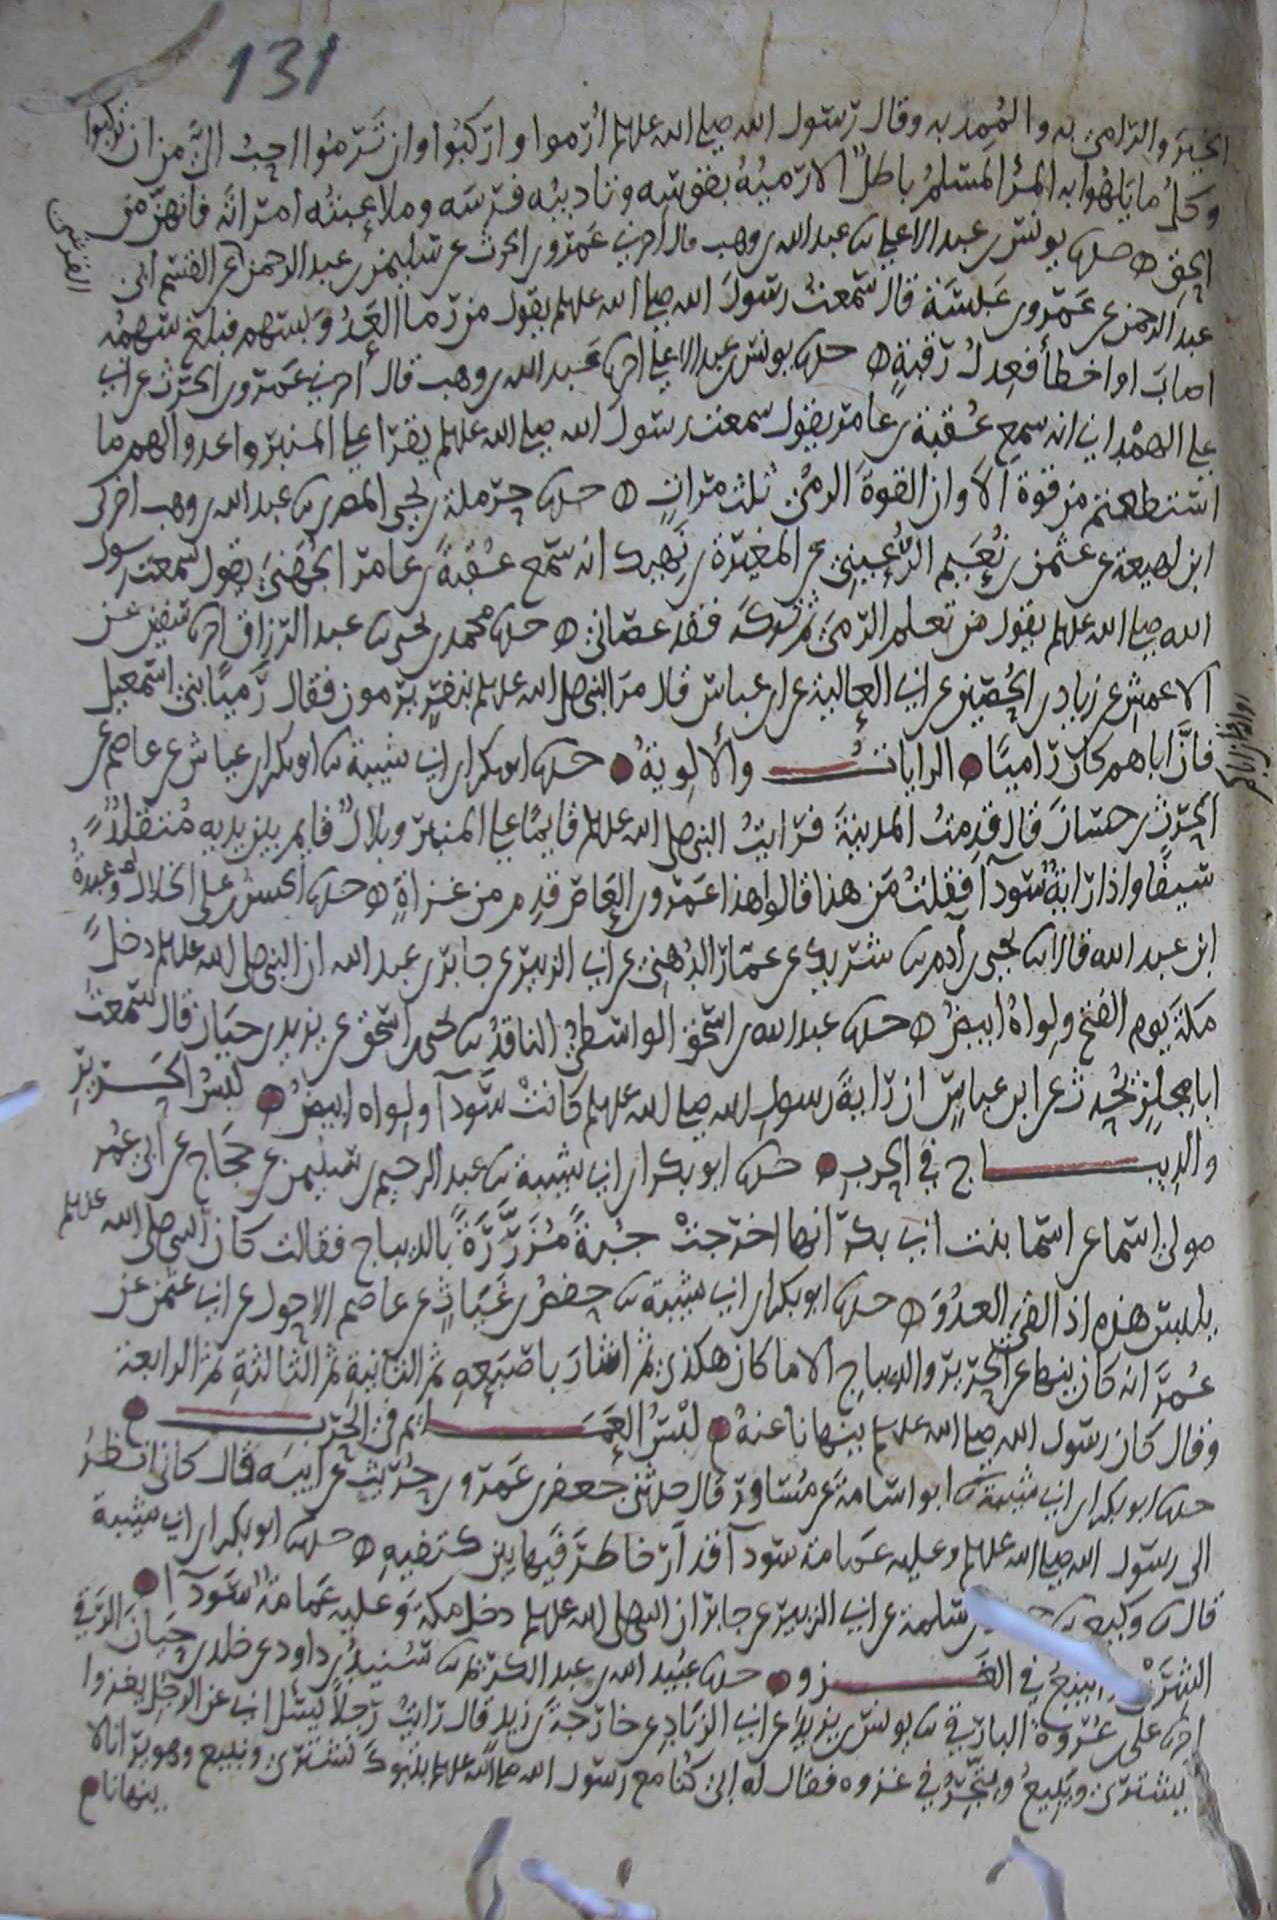 131
الخير والرامي به والممد به وقال رسول الله صلى الله علىه وسلم ارموا واركبوا وان ترموا احب الي من ان تركبوا
وكل ما يلهوا به المرؤ المسلم باطل الا رميه بقوسه وتاديبه فرسه وملاعبته امراته فانهن من
الحق حدثنا يونس بن عبد الاعلى نا عبد الله بن وهب قال اخبرني عمرو بن الحرث عن سليمن بن عبد الرحمن عن القسم ابي
القرشي
عبد الرحمن عن عمرو بن عبسة قال سمعت رسول الله صلى الله علىه وسلم يقول من رما العدو بسهم فبلغ سهمه
اصاب او اخطا فعدل رقبة حدثنا يونس بن عبد الاعلى اخبرنا عبد الله بن وهب قال اخبرني عمرو بن الحرث عن ابي
علي الهمداني انه سمع عقبة بن عامر يقول سمعت رسول الله صلى الله علىه وسلم يقرا على المنبر واعدوا لهم ما
استطعتم من قوة الا وان القوة الرمي ثلث مرات حدثنا حرملة بن يحيى المصري نا عبد الله بن وهب اخبرني
ابن لهيعة عن عثمن بن نعيم الرعيني عن المغيرة بن نهيك انه سمع عقبة بن عامر الجهني يقول سمعت رسول
الله صلى الله علىه وسلم يقول من تعلم الرمي ثم تركه فقد عصاني حدثنا محمد بن يحيى نا عبد الرزاق اخبرنا سفين عن
الاعمش عن زياد بن الحصين عن ابي العالية عن ابن عباس قال مر النبي صلى الله علىه وسلم بنفر يرمون فقال رميا بني اسمعيل
فان اباهم كان راميا الرايات والالوية حدثنا ابو بكر بن ابي شيبة نا ابو بكر بن عياش عن عاصم عن
الحرث بن حسان قال قدمت المدينة فرايت النبي صلى الله علىه وسلم قايما على المنبر وبلال قايم بين يديه متقلد
سيفا واذا راية سودآ فقلت من هذا قالوا هذا عمرو بن العاص قدم من غزاة حدثنا الحسن بن علي الخلال وعبدة
ابن عبد الله قالا نا يحيى بن ادم نا شريك عن عمار الدهني عن ابي الزبير عن جابر بن عبد الله ان النبي صلى الله علىه وسلم دخل
مكة يوم الفتح ولواه ابيض حدثنا عبد الله بن اسحق الواسطي الناقد نا يحيى بن اسحق عن يزيد بن حيان قال سمعت
ابا مجلز يحدث عن ابن عباس ان راية رسول الله صلى الله علىه وسلم كانت سودآ ولواه ابيض لبس الحرير
والديباج في الحرب حدثنا ابو بكر بن ابي شيبة نا عبد الرحيم بن سليمن عن حجاج عن ابي عمر
مولى اسما عن اسما بنت ابي بكر انها اخرجت جبة مزررة بالديباج فقالت كان النبي صلى الله علىه وسلم
يلبس هذه اذا لقي العدو حدثنا ابو بكر بن ابي شيبة نا حفص بن غياث عن عاصم الاحول عن ابي عثمن عن
عمر انه كان ينها عن الحرير والديباج الا ما كان هكذى ثم اشار باصبعه ثم الثانية ثم الثالثة ثم الرابعة
وقال كان رسول الله صلى الله علىه وسلم ينهانا عنه لبس العمايم في الحرب
حدثنا ابو بكر بن ابي شيبة نا ابو اسامة عن مساور قال حدثني جعفر بن عمرو بن حريث عن ابيه قال كاني انظر
الى رسول الله صلى الله علىه وسلم وعليه عمامة سودآ قد ارخا طرفيها بين كتفيه حدثنا ابو بكر بن ابي شيبة
قال نا وكيع نا سلمة عن ابي الزبير عن جابر ان النبي صلى الله علىه وسلم دخل مكة وعليه عمامة سودآ
البيع في الغزو حدثنا عبيد الله بن عبد الكريم نا سنيد بن داود عن خلد بن حيان الرقي
اخبرنا علي بن عروة البارقي نا يونس بن يزيد عن ابي الزناد عن خارجة بن زيد قال رايت رجلا يسئل ابي عن الرجل يغزوا
يشتري ويبيع ويتجر في غزوه فقال له ابي كنا مع رسول الله صلى الله علىه وسلم بتبوك نشتري ونبيع وهو يرانا لا
ينهانا